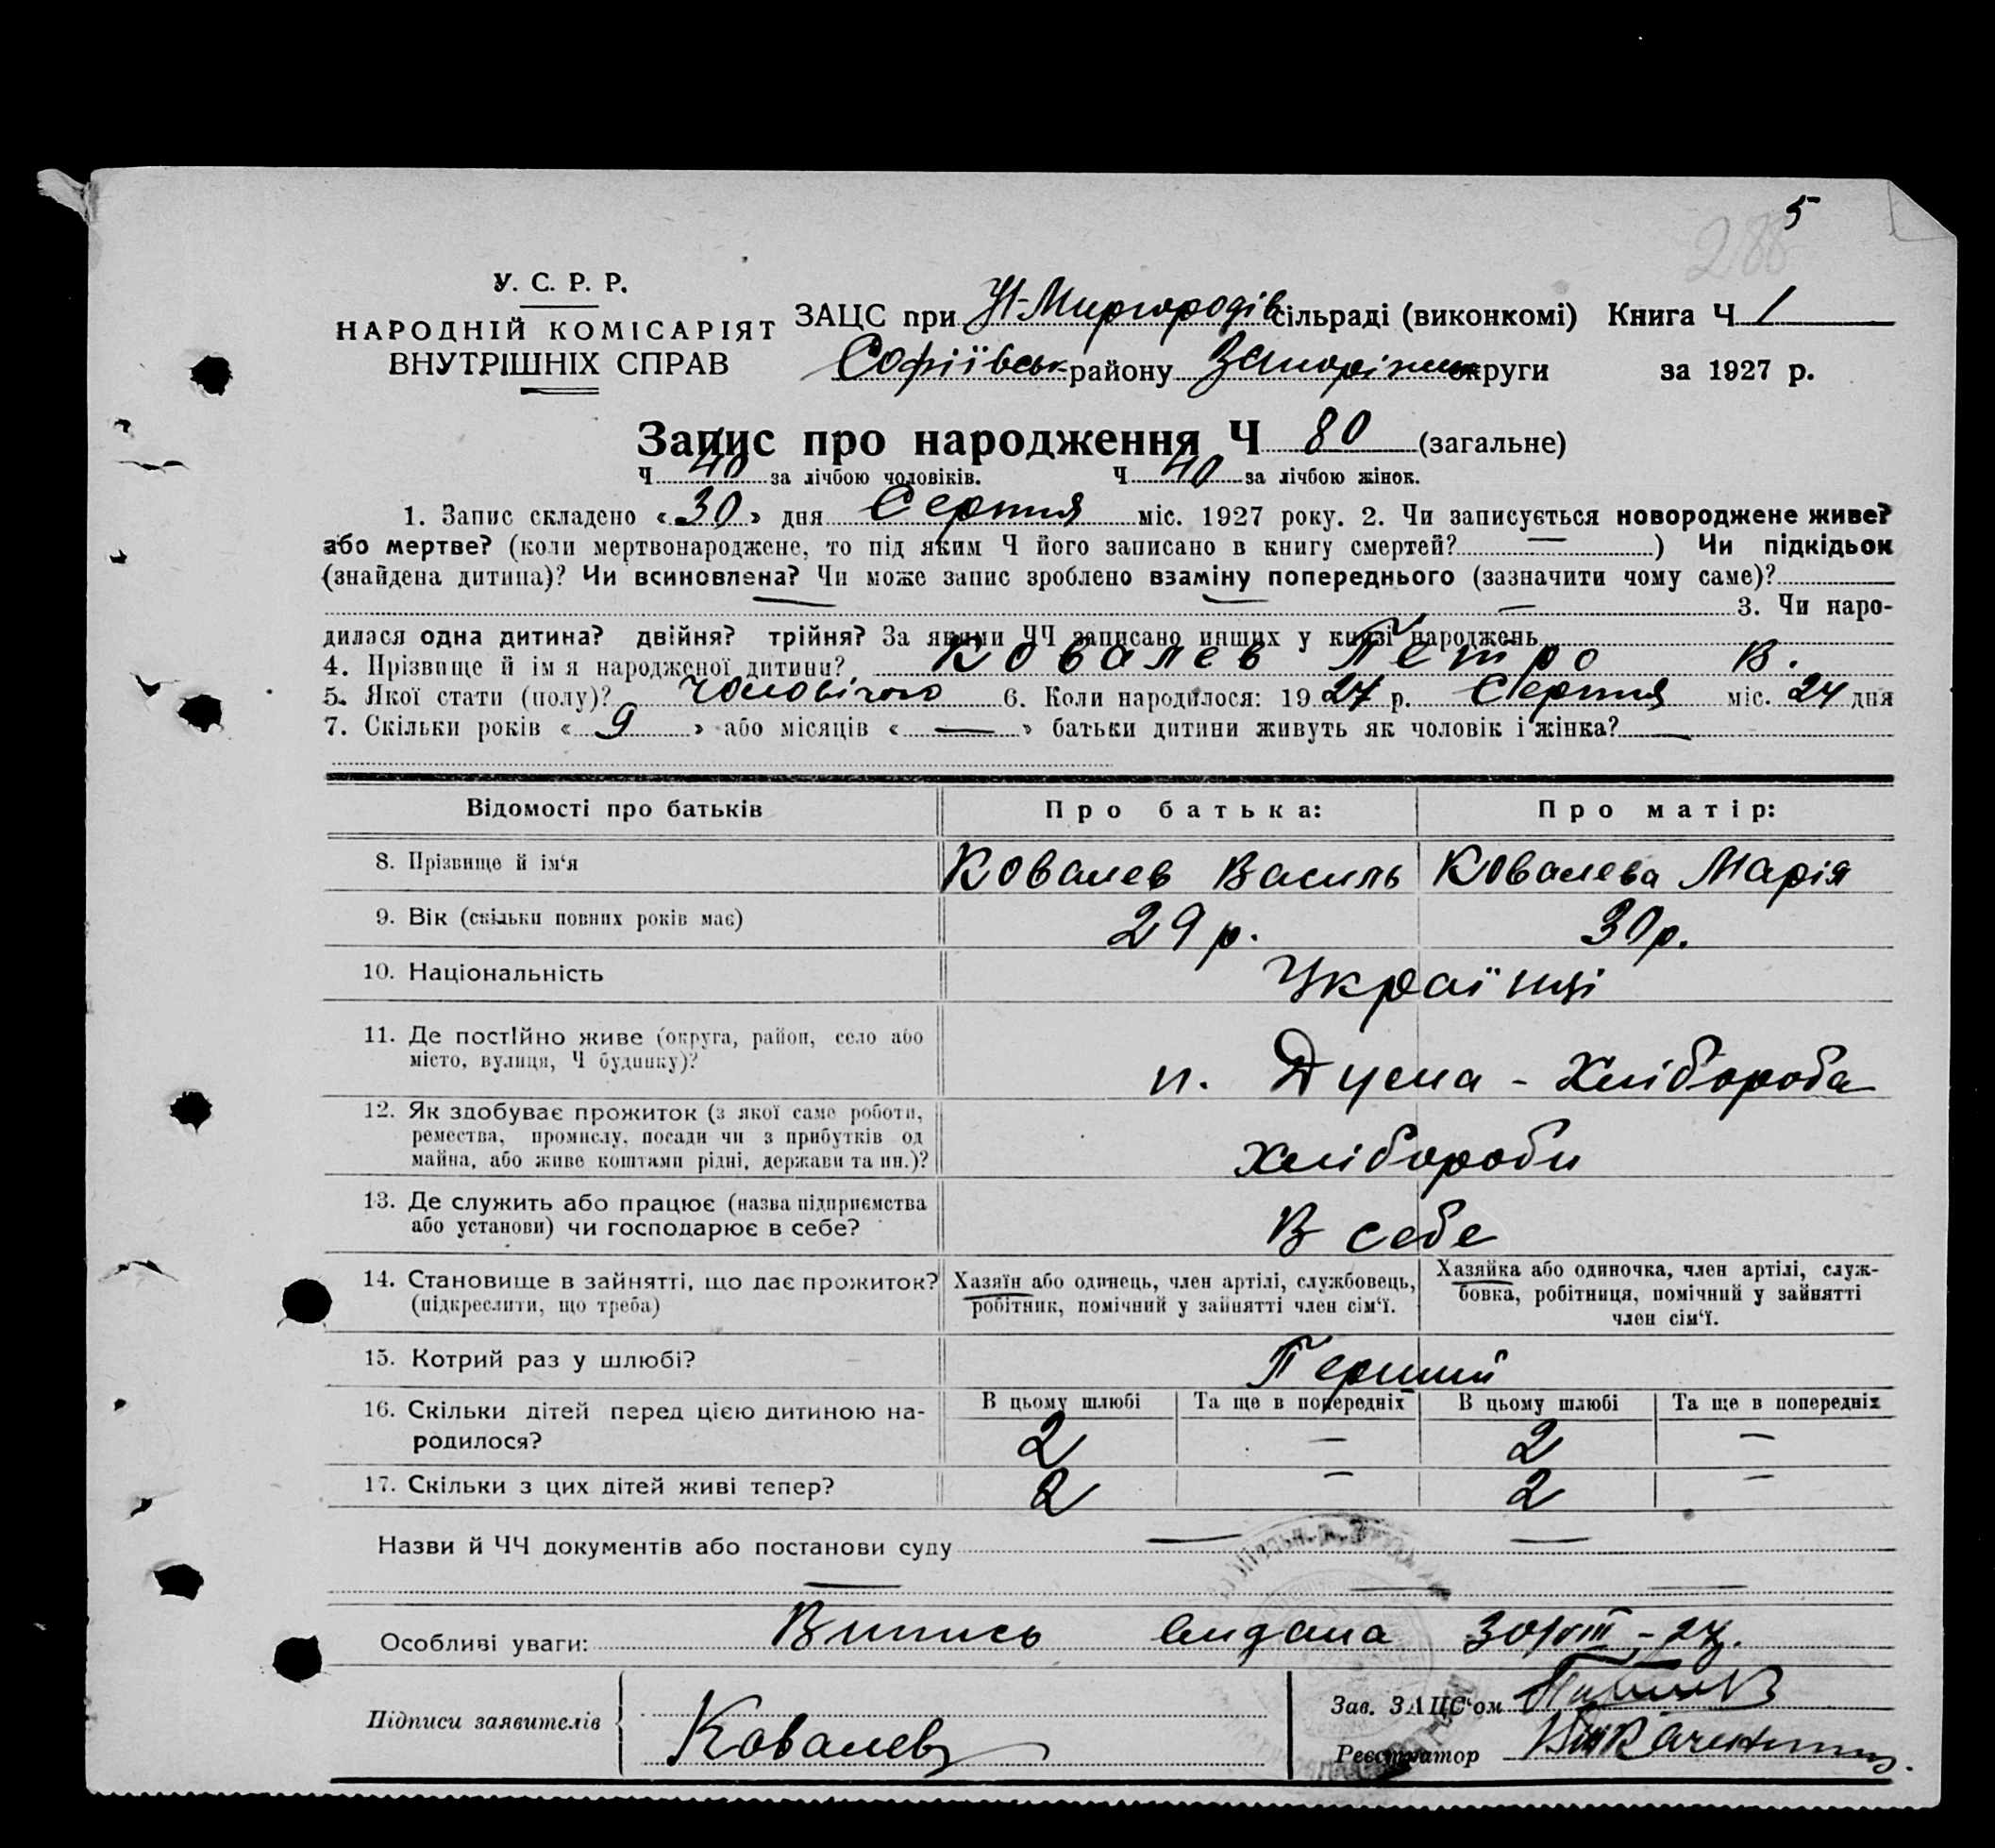 5
288
У. С. Р. Р.
НАРОДНІЙ КОМІСАРІЯТ
ВНУТРІШНІХ СПРАВ
ЗАЦС при Н-Миргородів сільраді (виконкомі) Книга Ч 1
Софіївськ району Запоріжськ округи за 1927 р.
Запис про народження Ч 80 (загальне)
Ч 40 за лічбою чоловіків. Ч 40 за лічбою жінок.
1. Запис складено « 30 » дня Серпня міс. 1927 року. 2. Чи записується новороджене живе?
або мертве? (коли мертвонароджене, то під яким Ч його записано в книгу смертей? — ) Чи підкідьок
(знайдена дитина)? Чи всиновлена? Чи може запис зроблено взаміну попереднього (зазначити чому саме)?
— — — 3. Чи наро-
дилася одна дитина? двійня? трійня? За якими ЧЧ записано инших у книзі народжень
4. Прізвище й ім я народженої дитини? Ковалев Петро В.
5. Якої стати (полу)? чоловічого 6. Коли народилося: 1927 р. Серпня міс. 24 дня
7. Скільки років « 9 » або місяців « — » батьки дитини живуть як чоловік і жінка? —
Відомості про батьків Про батька: Про матір:
8. Прізвище й ім‘я Ковалев Василь Ковалева Марія
9. Вік (скільки повних років має) 29 р. 30 р.
10. Національність Українці
11. Де постійно живе (округа, район, село або
місто, вулиця, Ч будинку)? п. Дума - Хлібороба
12. Як здобуває прожиток (з якої саме роботи,
ремества, промислу, посади чи з прибутків од
майна, або живе коштами рідні, держави та ин.)? Хлібороби
13. Де служить або працює (назва підприємства
або установи) чи господарює в себе? В себе
14. Становище в зайнятті, що дає прожиток?
(підкреслити, що треба)
Хазяїн або одинець, член артілі, службовець,
робітник, помічний у зайнятті член сім‘ї.
Хазяйка або одиночка, член артілі, служ-
бовка, робітниця, помічний у зайнятті
член сім‘ї.
15. Котрий раз у шлюбі? Перший
В цьому шлюбі Та ще в попередніх В цьому шлюбі Та ще в попередніх
16. Скільки дітей перед цією дитиною на-
родилося? 2 — 2 —
17. Скільки з цих дітей живі тепер? 2 — 2 —
Назви й ЧЧ документів або постанови суду — —
— — —
Особливі уваги: Витись видана 30/VIII-27.
Підписи заявителів Ковалев
Зав. ЗАЦС‘ом
Реєстратор